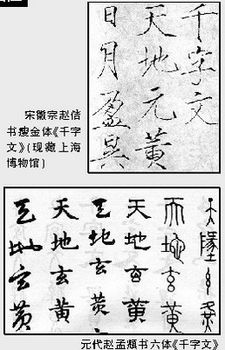 千字文
天地元黃
日月盈昃
宋徽宗赵佶
书瘦金体《千字
文》(现藏上海
博物馆)
天地玄黃
天地玄黃
天地玄黃
天地玄黃
天地玄黃
元代赵孟頫书六体《千字文》